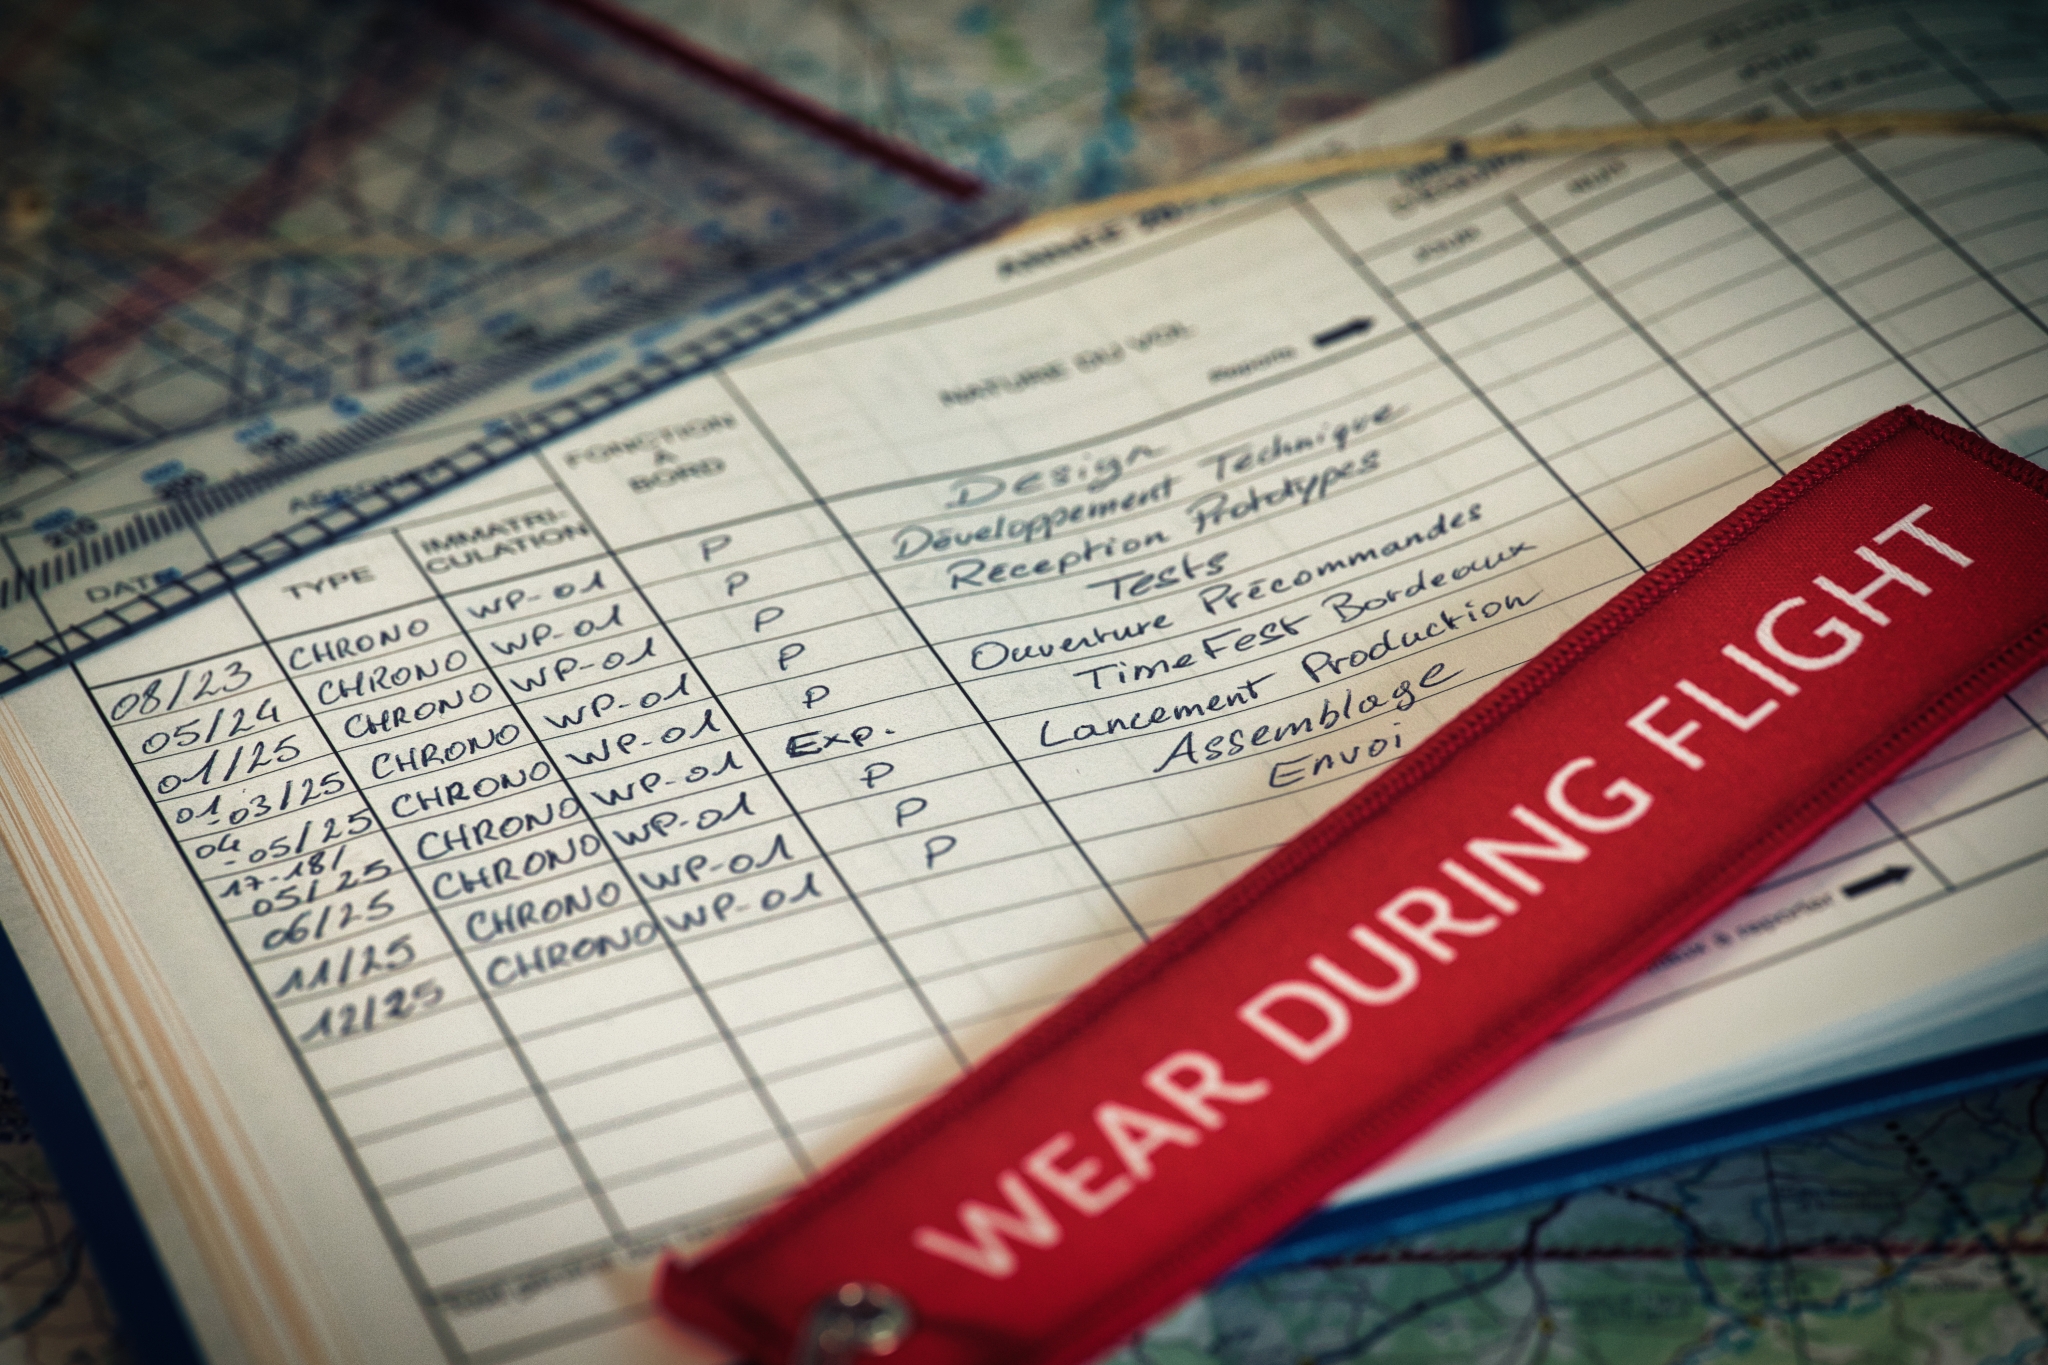 NATURE DU VOL
FONCTION
À
BORD
IMMATRI-
CULATION
TYPE
DATE
08/23 CHRONO WP-01 P Design
05/24 CHRONO WP-01 P Développement Technique
01/25 CHRONO WP-01 P Réception Prototypes
01-03/25 CHRONO WP-01 P Tests
04-05/25 CHRONO WP-01 P Ouverture Précommandes
17-18/05/25 CHRONO WP-01 Exp. TimeFest Bordeaux
06/25 CHRONO WP-01 P Lancement Production
11/25 CHRONO WP-01 P Assemblage
12/25 CHRONO WP-01 P Envoi
WEAR DURING FLIGHT